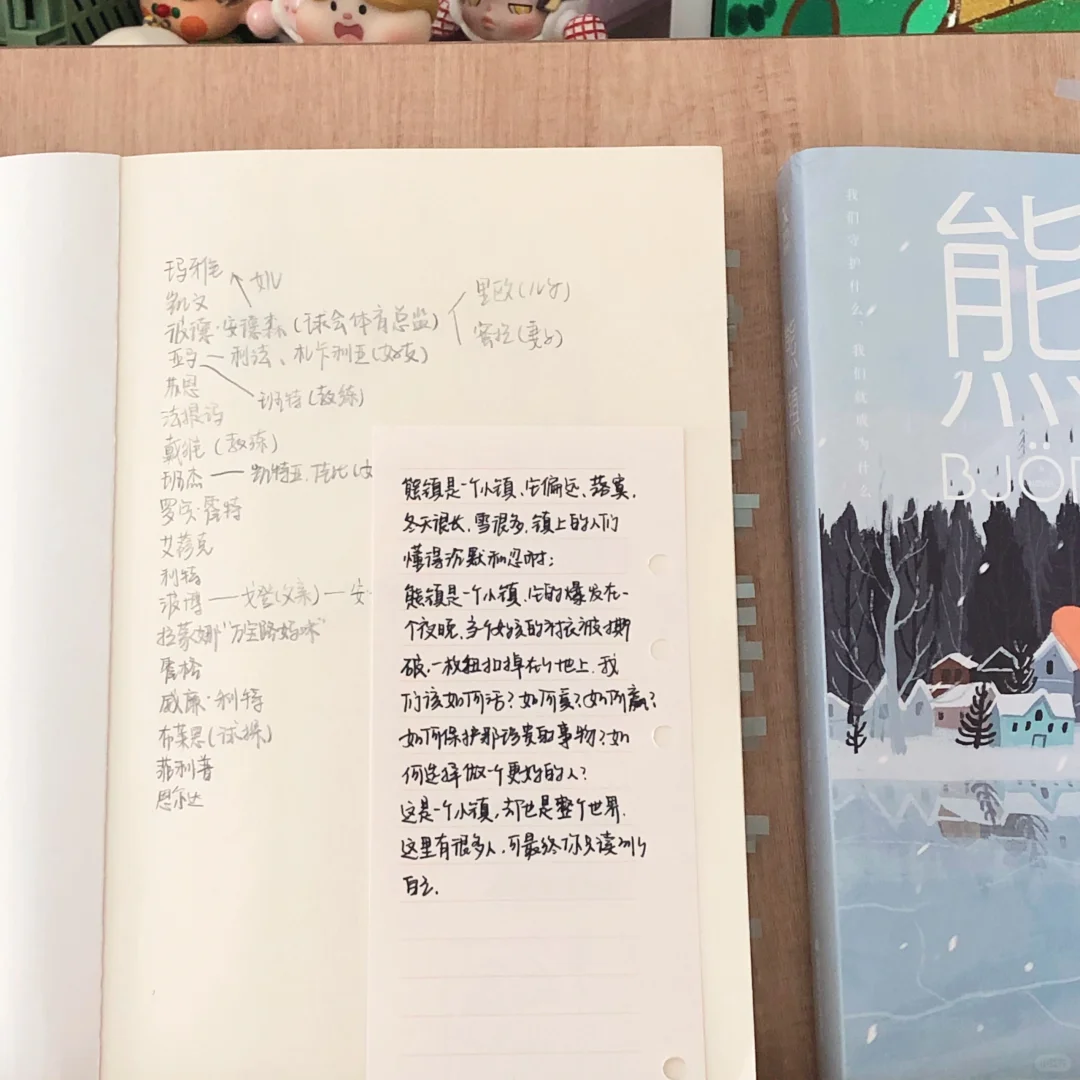 玛雅
女儿
凯文
彼德·安德森(球会体育总监)
里欧(儿子)
蜜拉(妻子)
亚马—利法、札卡利亚(好友)
苏恩
班特(教练)
法提玛
戴维(教练)
班杰—凯特亚、佳比(女
罗贝·霍特
艾蒂克
利特
波博—戈登(父亲)—安
拉蒙娜"万宝路妈咪"
詹格
威廉·利特
布莱恩
菲利普
恩尔达
熊镇是一个小镇,它偏远、落寞,
冬天很长,雪很多,镇上的人们
懂得沉默和忍耐;
熊镇是一个小镇,它的爆发在一
个夜晚,当个女孩的衬衣被撕
破,一枚纽扣掉在了地上,我
们该如何活?如何爱?如何赢?
如何保护那珍贵的事物?如
何选择做一个更好的人?
这是一个小镇,却也是整个世界.
这里有很多人,可最终你只读到了
自己.
我们守护什么,我们就成为什么
熊
BJÖ
熊镇